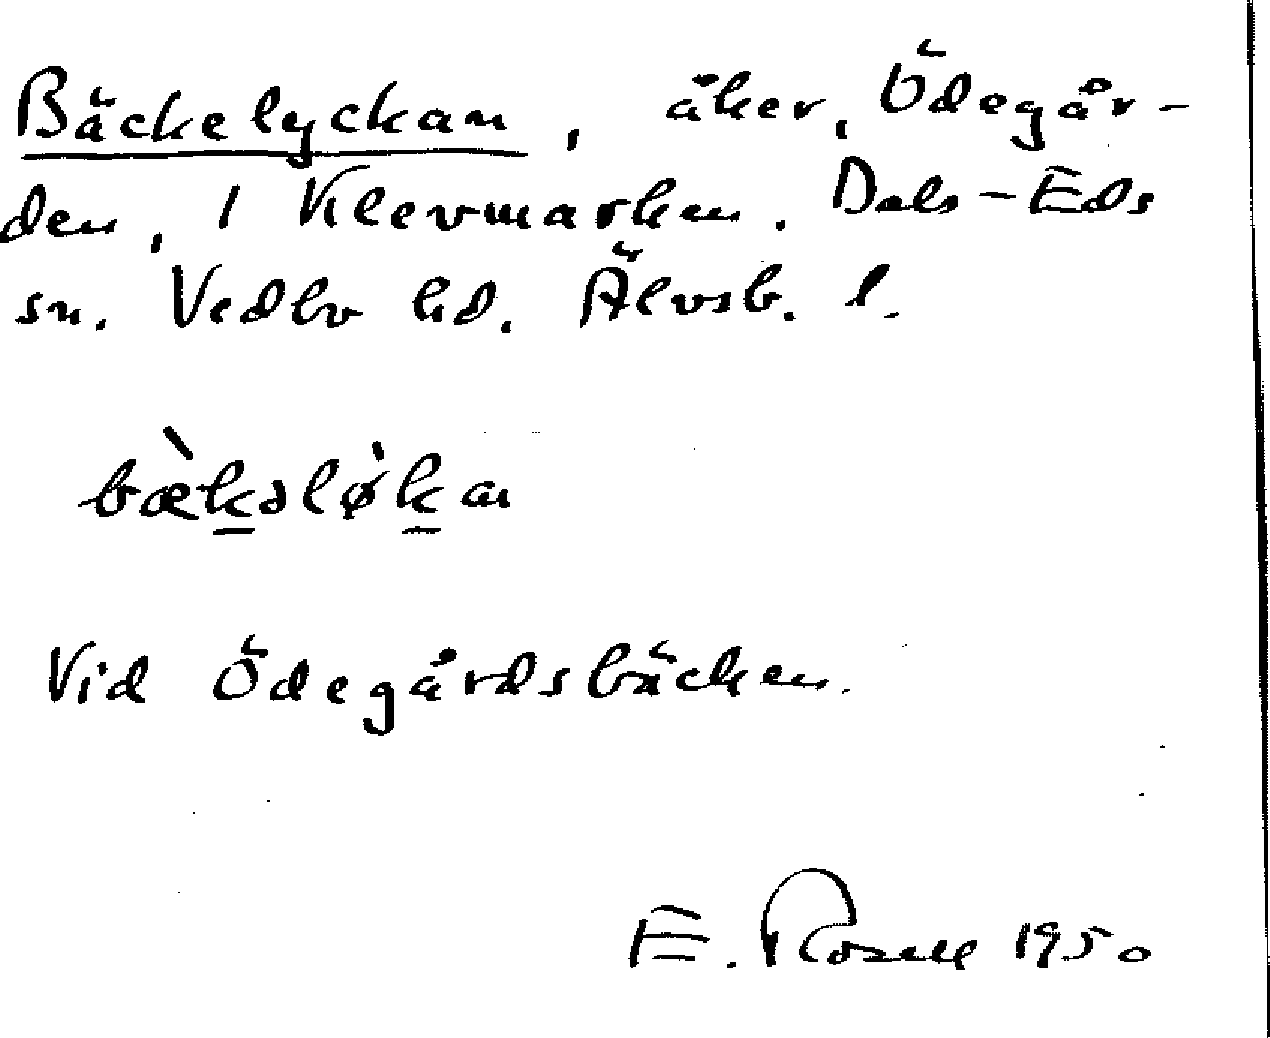 Bäckelyckan, åker, Ödegår-
den, 1 Klevmarken. Dals-Eds
sn. Vedbo hd. Älvsb. l.
bæ̀kəlø̀kan
Vid Ödegårdsbäcken.
E. Rosell 1950